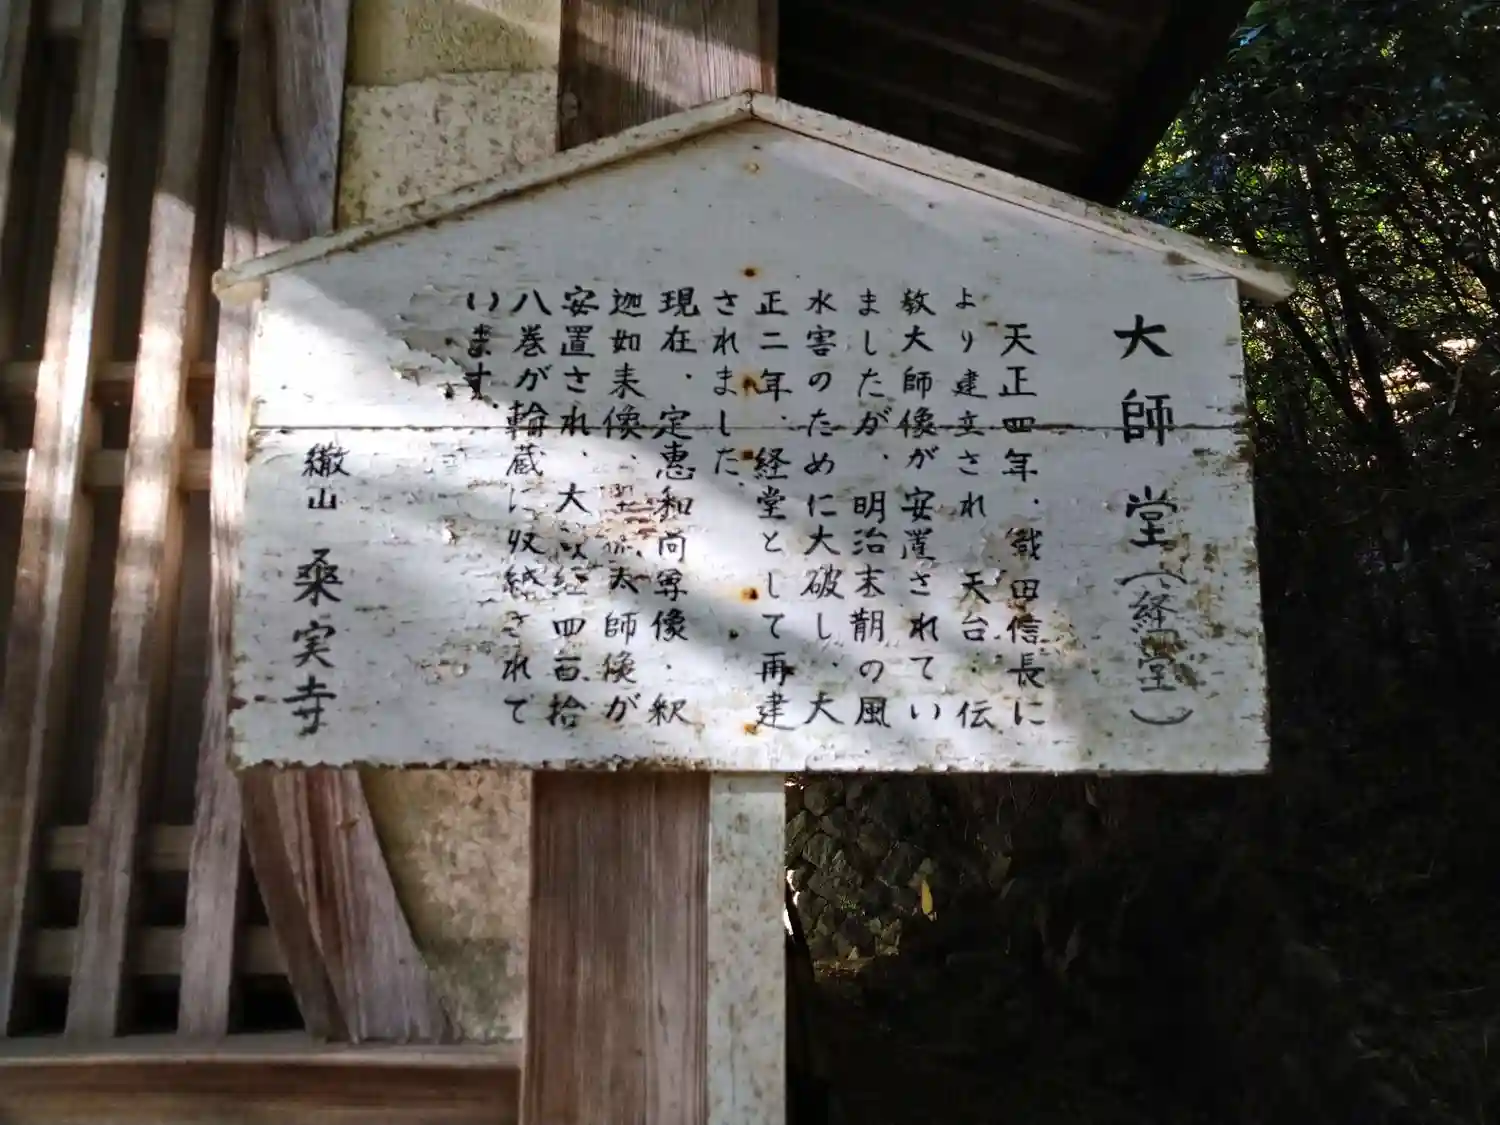 大師堂(経堂)
天正四年、織田信長に
より建立され天台・伝
教大師像が安置されてい
ましたが、明治末期の風
水害のために大破し、大
正二年、経堂として再建
されました、
現在、定恵和尚尊像・釈
迦如来像、大師像が
安置され、大蔵経四百拾
八巻が輪蔵に収納されて
います。
繖山 桑実寺